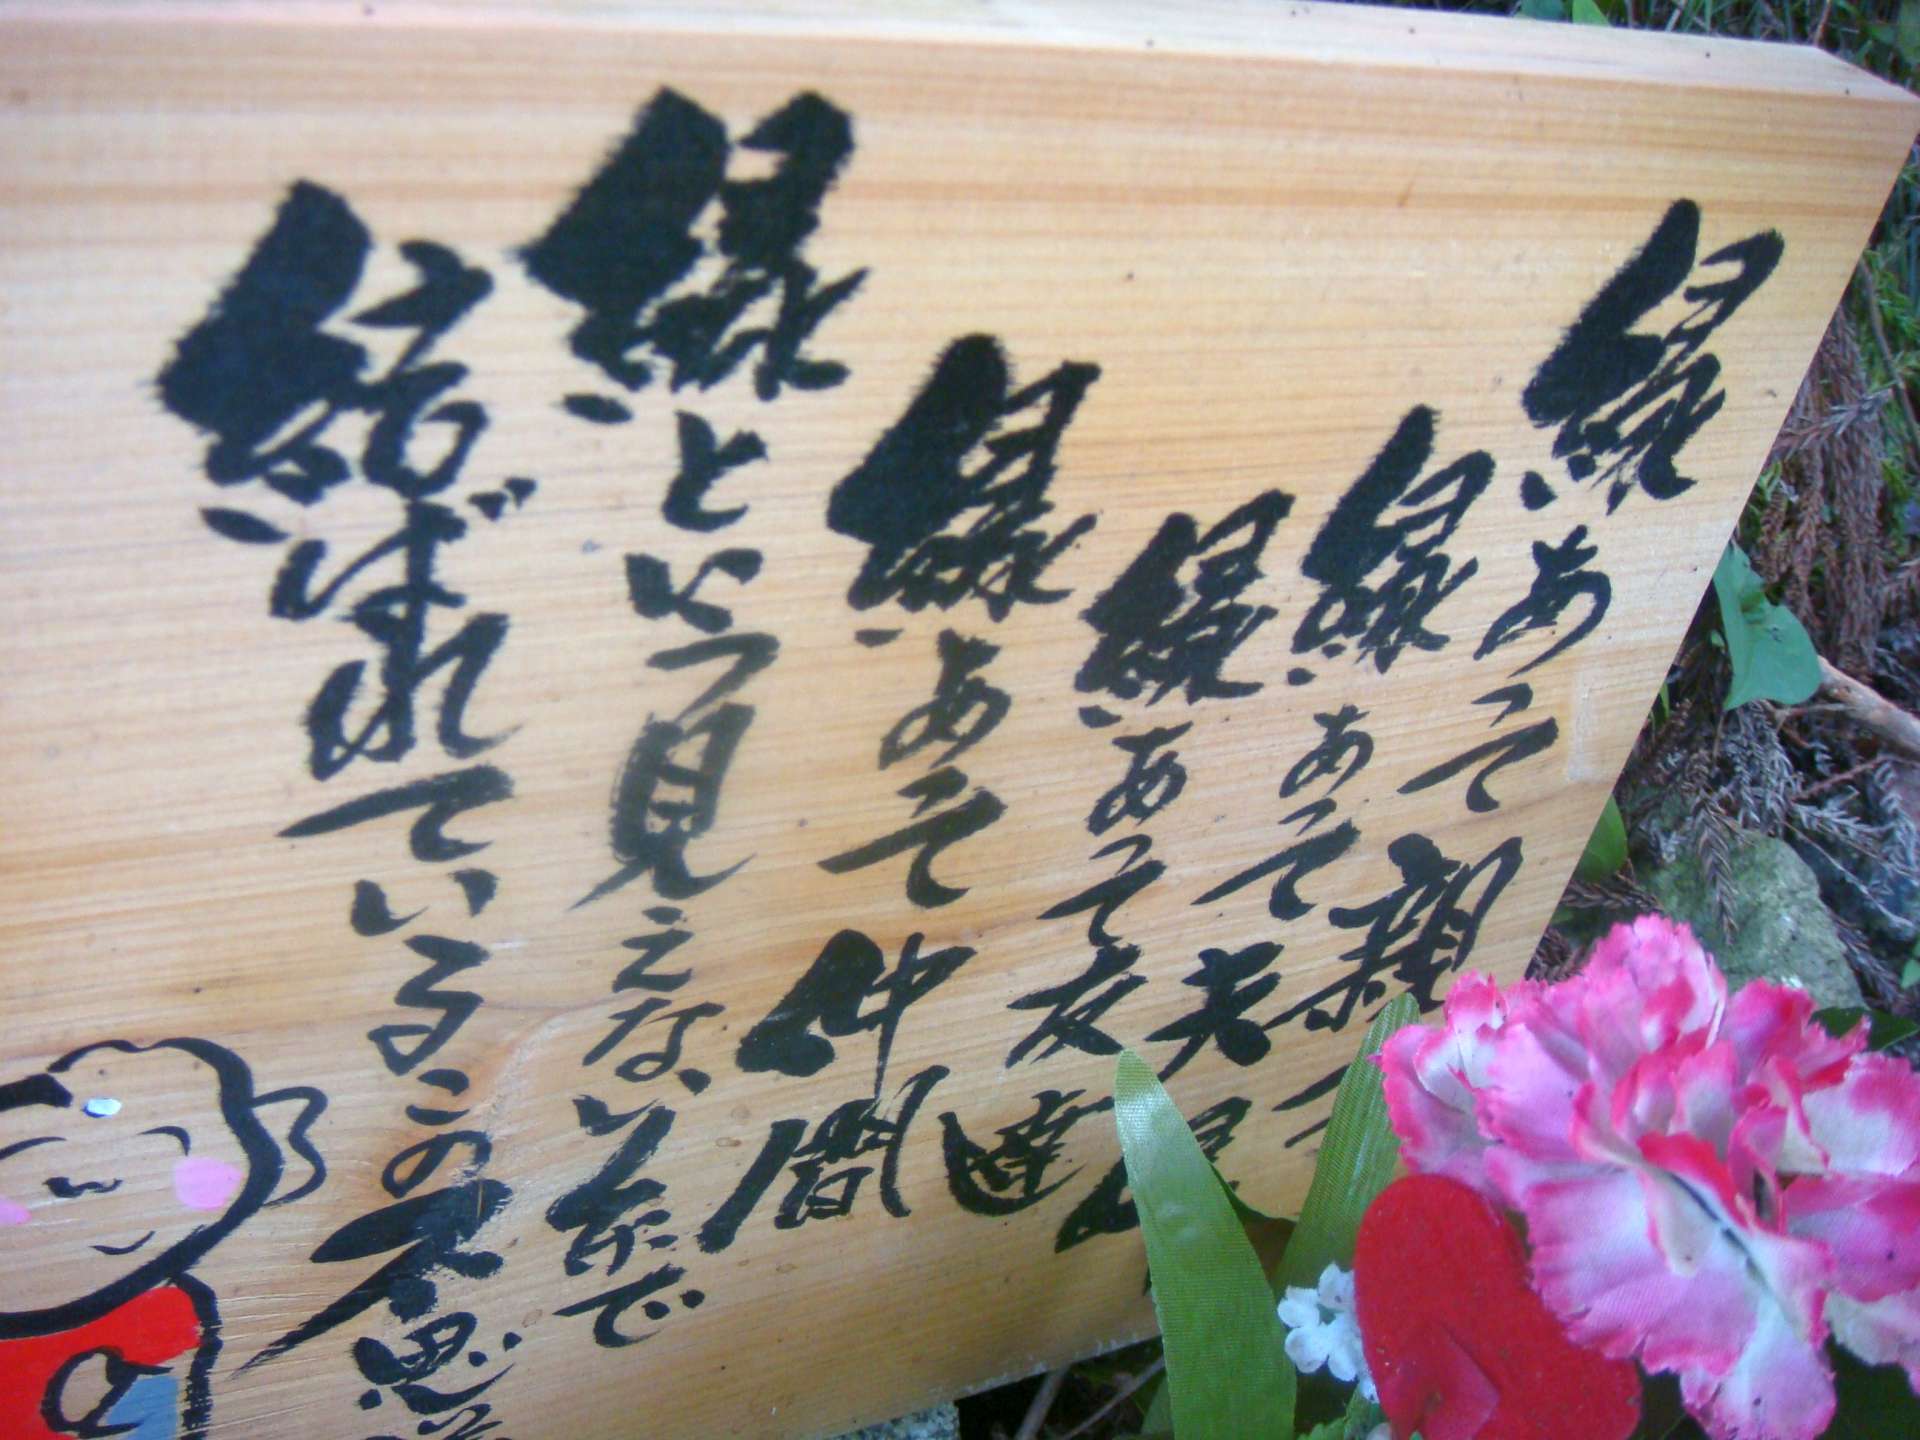 縁あって親子
縁あって夫婦
縁あって友達
縁あって仲間
縁という見えない糸で
結ばれているこの不思議